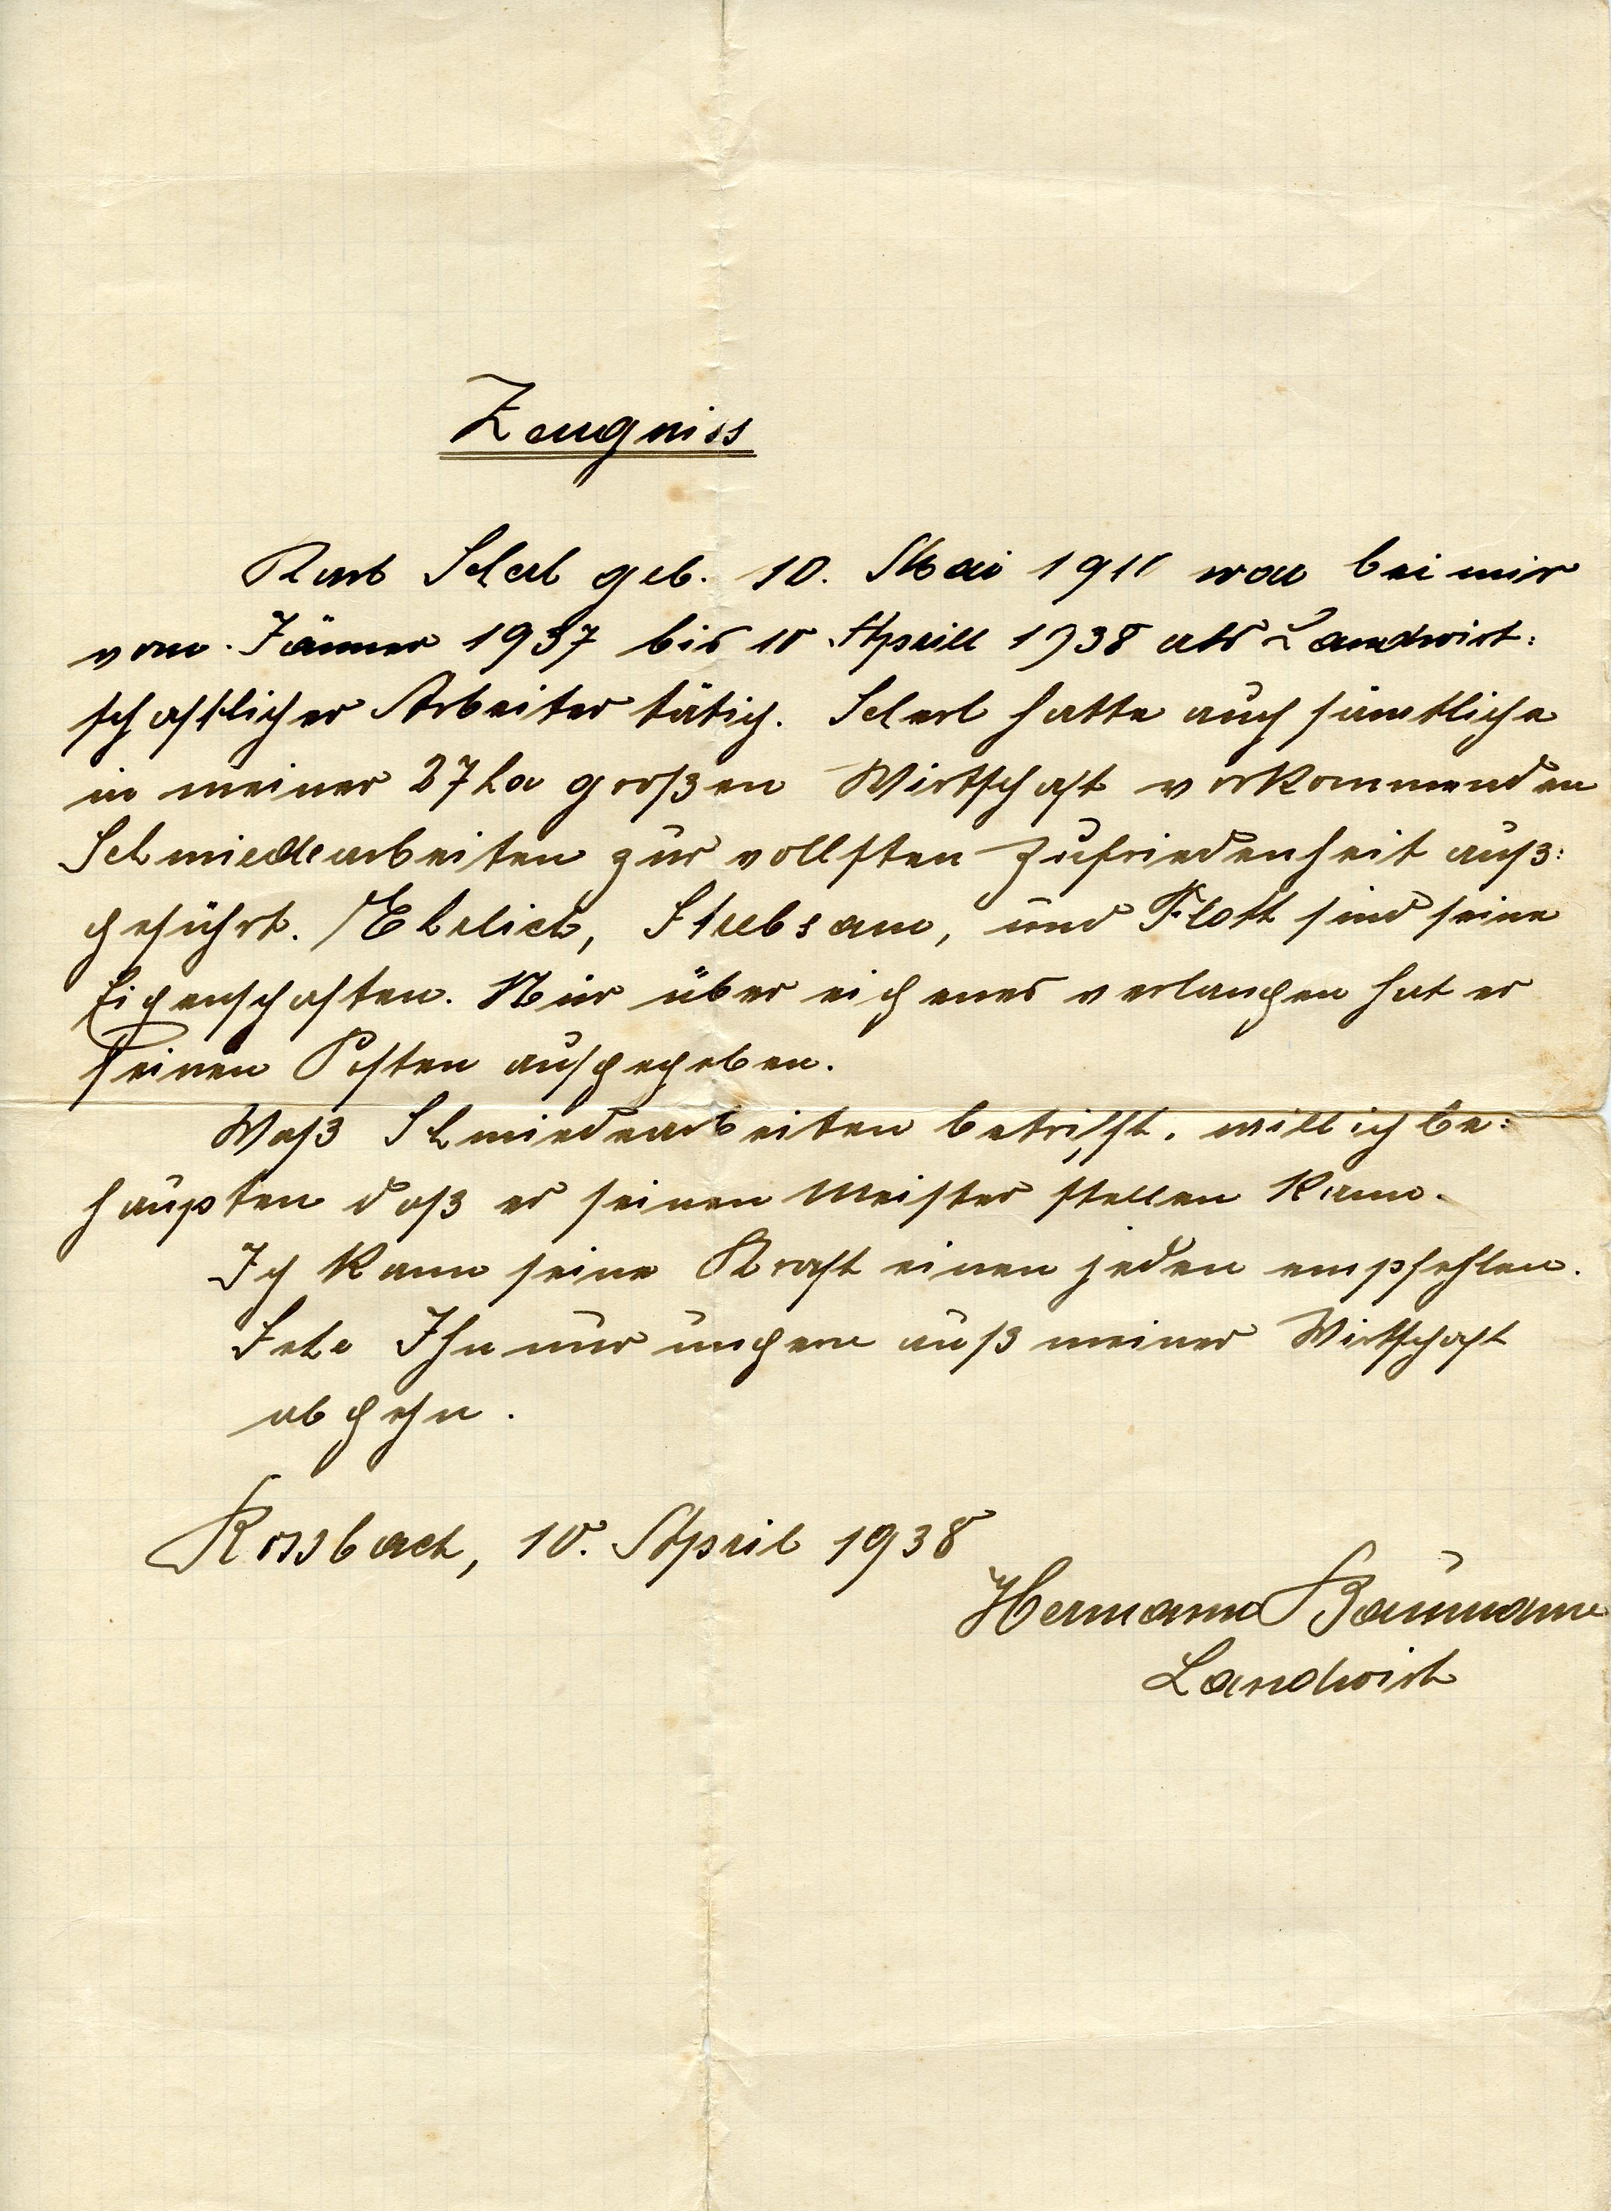 Zeugniss
Karl Scherl geb. 10. Mai 1911 war bei mir
vom. Jänner 1937 bis 10 Aprill 1938 als Landwirt:
schaftlicher Arbeiter tätig. Scherl hatte auch sämtliche
in meiner 27 ha großen Wirtschaft vorkommenden
Schmiedearbeiten zur vollsten Zufriedenheit auß:
geführt. Ehrlich, Strebsam, und Flott sind seine
Eigenschaften. Nur über eigenes verlangen hat er
seinen Posten aufgegeben.
Waß Schmiedearbeiten betrifft, will ich be:
haupten daß er seinen Meister stellen kann.
Ich kann seine Kraft einen jeden empfehlen.
Sehe Ihn nur ungern auß meiner Wirtschaft
abgehn.
Rossbach, 10. April 1938
Hermann Baumann
Landwirt